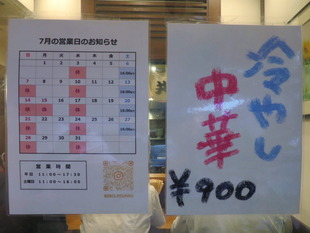 7月の営業日のお知らせ
日 月 火 水 木 金 土
1 2 3 4 5 6
7 8 9 10 11 12 13
14 15 16 17 18 19 20
21 22 23 24 25 26 27
28 29 30 31
営業時間
平日 11:00～17:30
土曜日 11:00～16:00
冷やし
中華
¥900